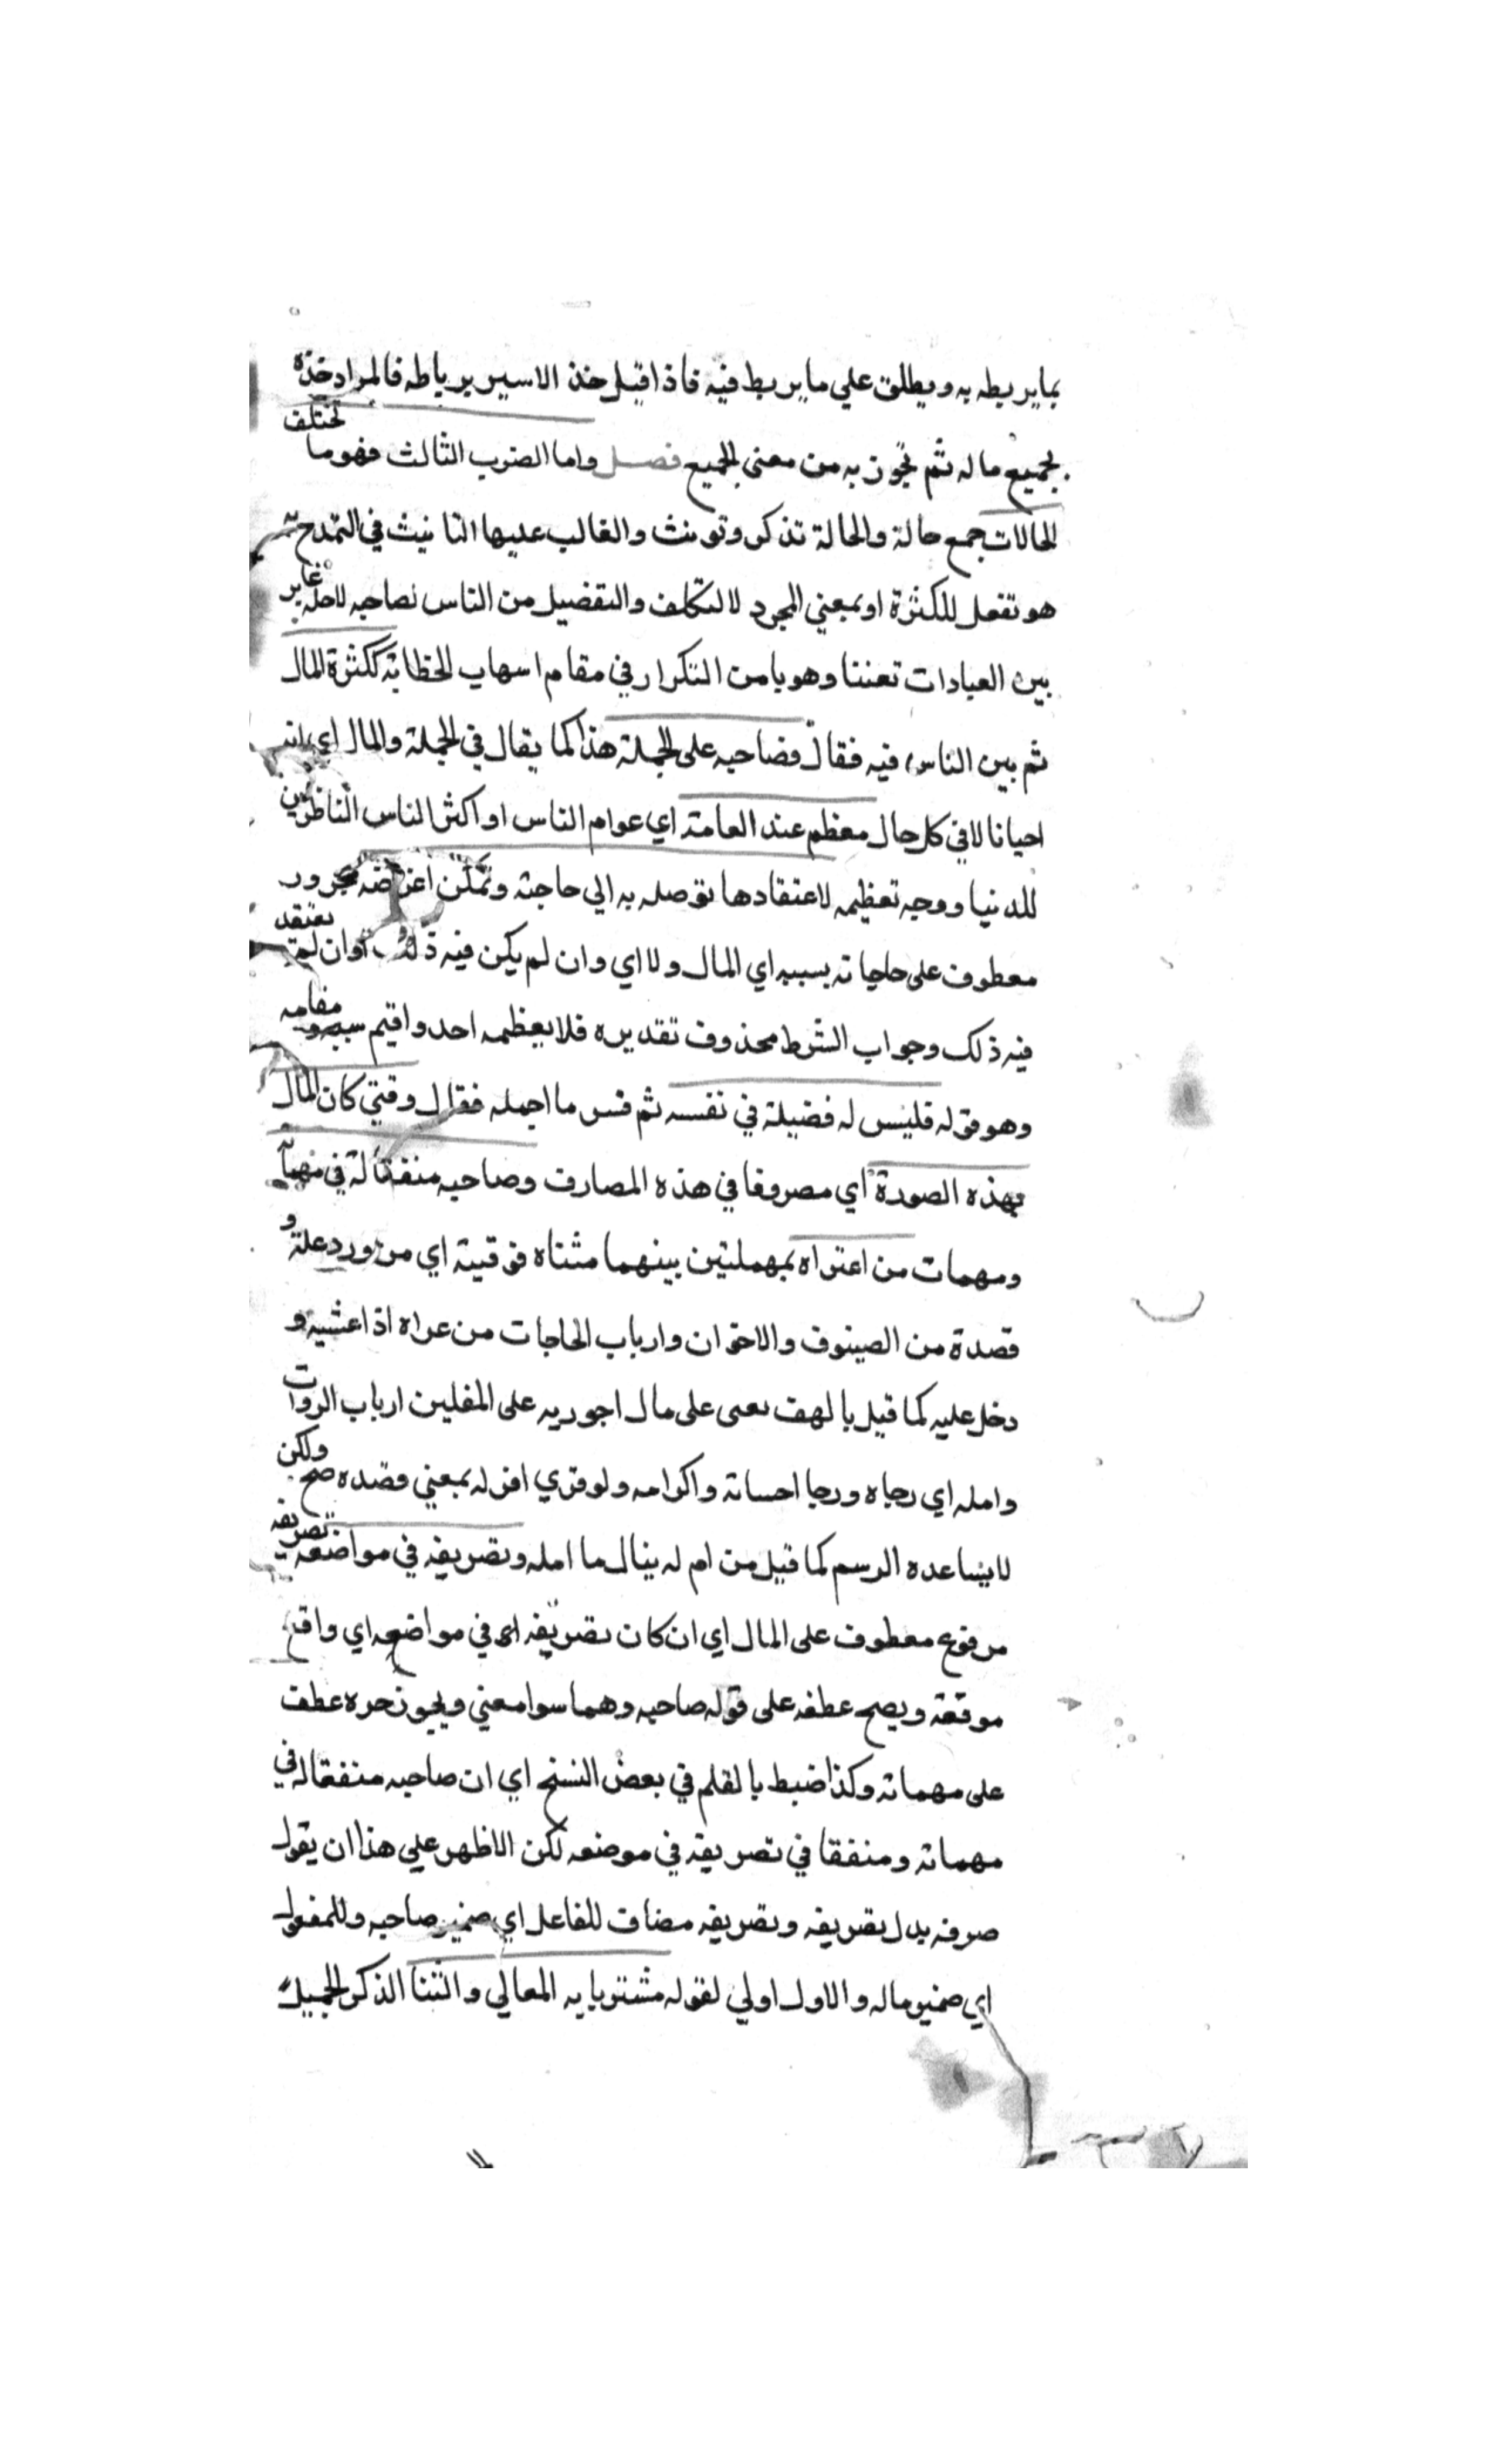 بما يربطه به ويطلق علي ما يربط فيه فاذا قيل خذ الاسير برباطه فالمراد خذه
بجميع ماله ثم تجوز به من معني الجميع فصل واما الضرب الثالث فهو ما تختلف
الحالات جمع حالة والحالة تذكر وتونث والغالب عليها التانيث في التمدح به
هو تفعل للكثرة او بمعني المجرد لا لتكلف والتفضيل من الناس لصاحبه لاجله غاير
بين العبادات تعننا وهو يامن التكرار في مقام اسهاب الخطابة ككثرة المال
ثم بين الناس فيه فقال فصاحبه على الجملة هذا كما يقال في الجملة والمال اي انه
احيانا لا في كل حال معظم عند العامة اي عوام الناس او اكثر الناس الناظرين
للدنيا ووجه تعظيمه لاعتقادها توصله به الي حاجته وتمكن اغراضه مجرور
معطوف على حاجاته بسببه اي المال ولا اي وان لم يكن فيه ذلك او ان لم يعتقد
فيه ذلك وجواب الشرط محذوف تقديره فلا يعظمه احد واقيم سببه مقامه
وهو قوله فليس له فضيلة في نفسه ثم فسر ما اجمله فقال ومتي كان المال
بهذه الصورة اي مصروفا في هذه المصارف وصاحبه منفقا له في مهماته
ومهمات من اعتراه بمهملتين بينهما مثناه فوقية اي من ورد علية و
قصدة من الضيوف والاخوان وارباب الحاجات من عراه اذا غشيه و
دخل عليه كما قيل يا لهف نفسي على مال اجود به على المقلين ارباب المروات
وامله اي رجاه ورجا احسانه واكرامه ولو قري امّ له بمعني قصده صح ولكن
لا يساعده الرسم كما قيل من ام له ينال ما امله وتصريفه في مواضعه تصريفه
مرفوع معطوف على المال اي ان كان تصريفه اي في مواضعه اي واقع
موقعة ويصح عطفه على قوله صاحبه وهما سوا معني ويجوز جره عطف
على مهماته وكذا ضبط بالقلم في بعض النسخ اي ان صاحبه منفقا له في
مهماته ومنفقا في تصريفه في موضعه لكن الاظهر علي هذا ان يقول
صرفه بدل تصريفه وتصريفه مضاف للفاعل اي ضمير صاحبه وللمفعول
اي ضمير ماله والاول اولي لقوله مشتريا به المعالي والثنا الذكر الجميل